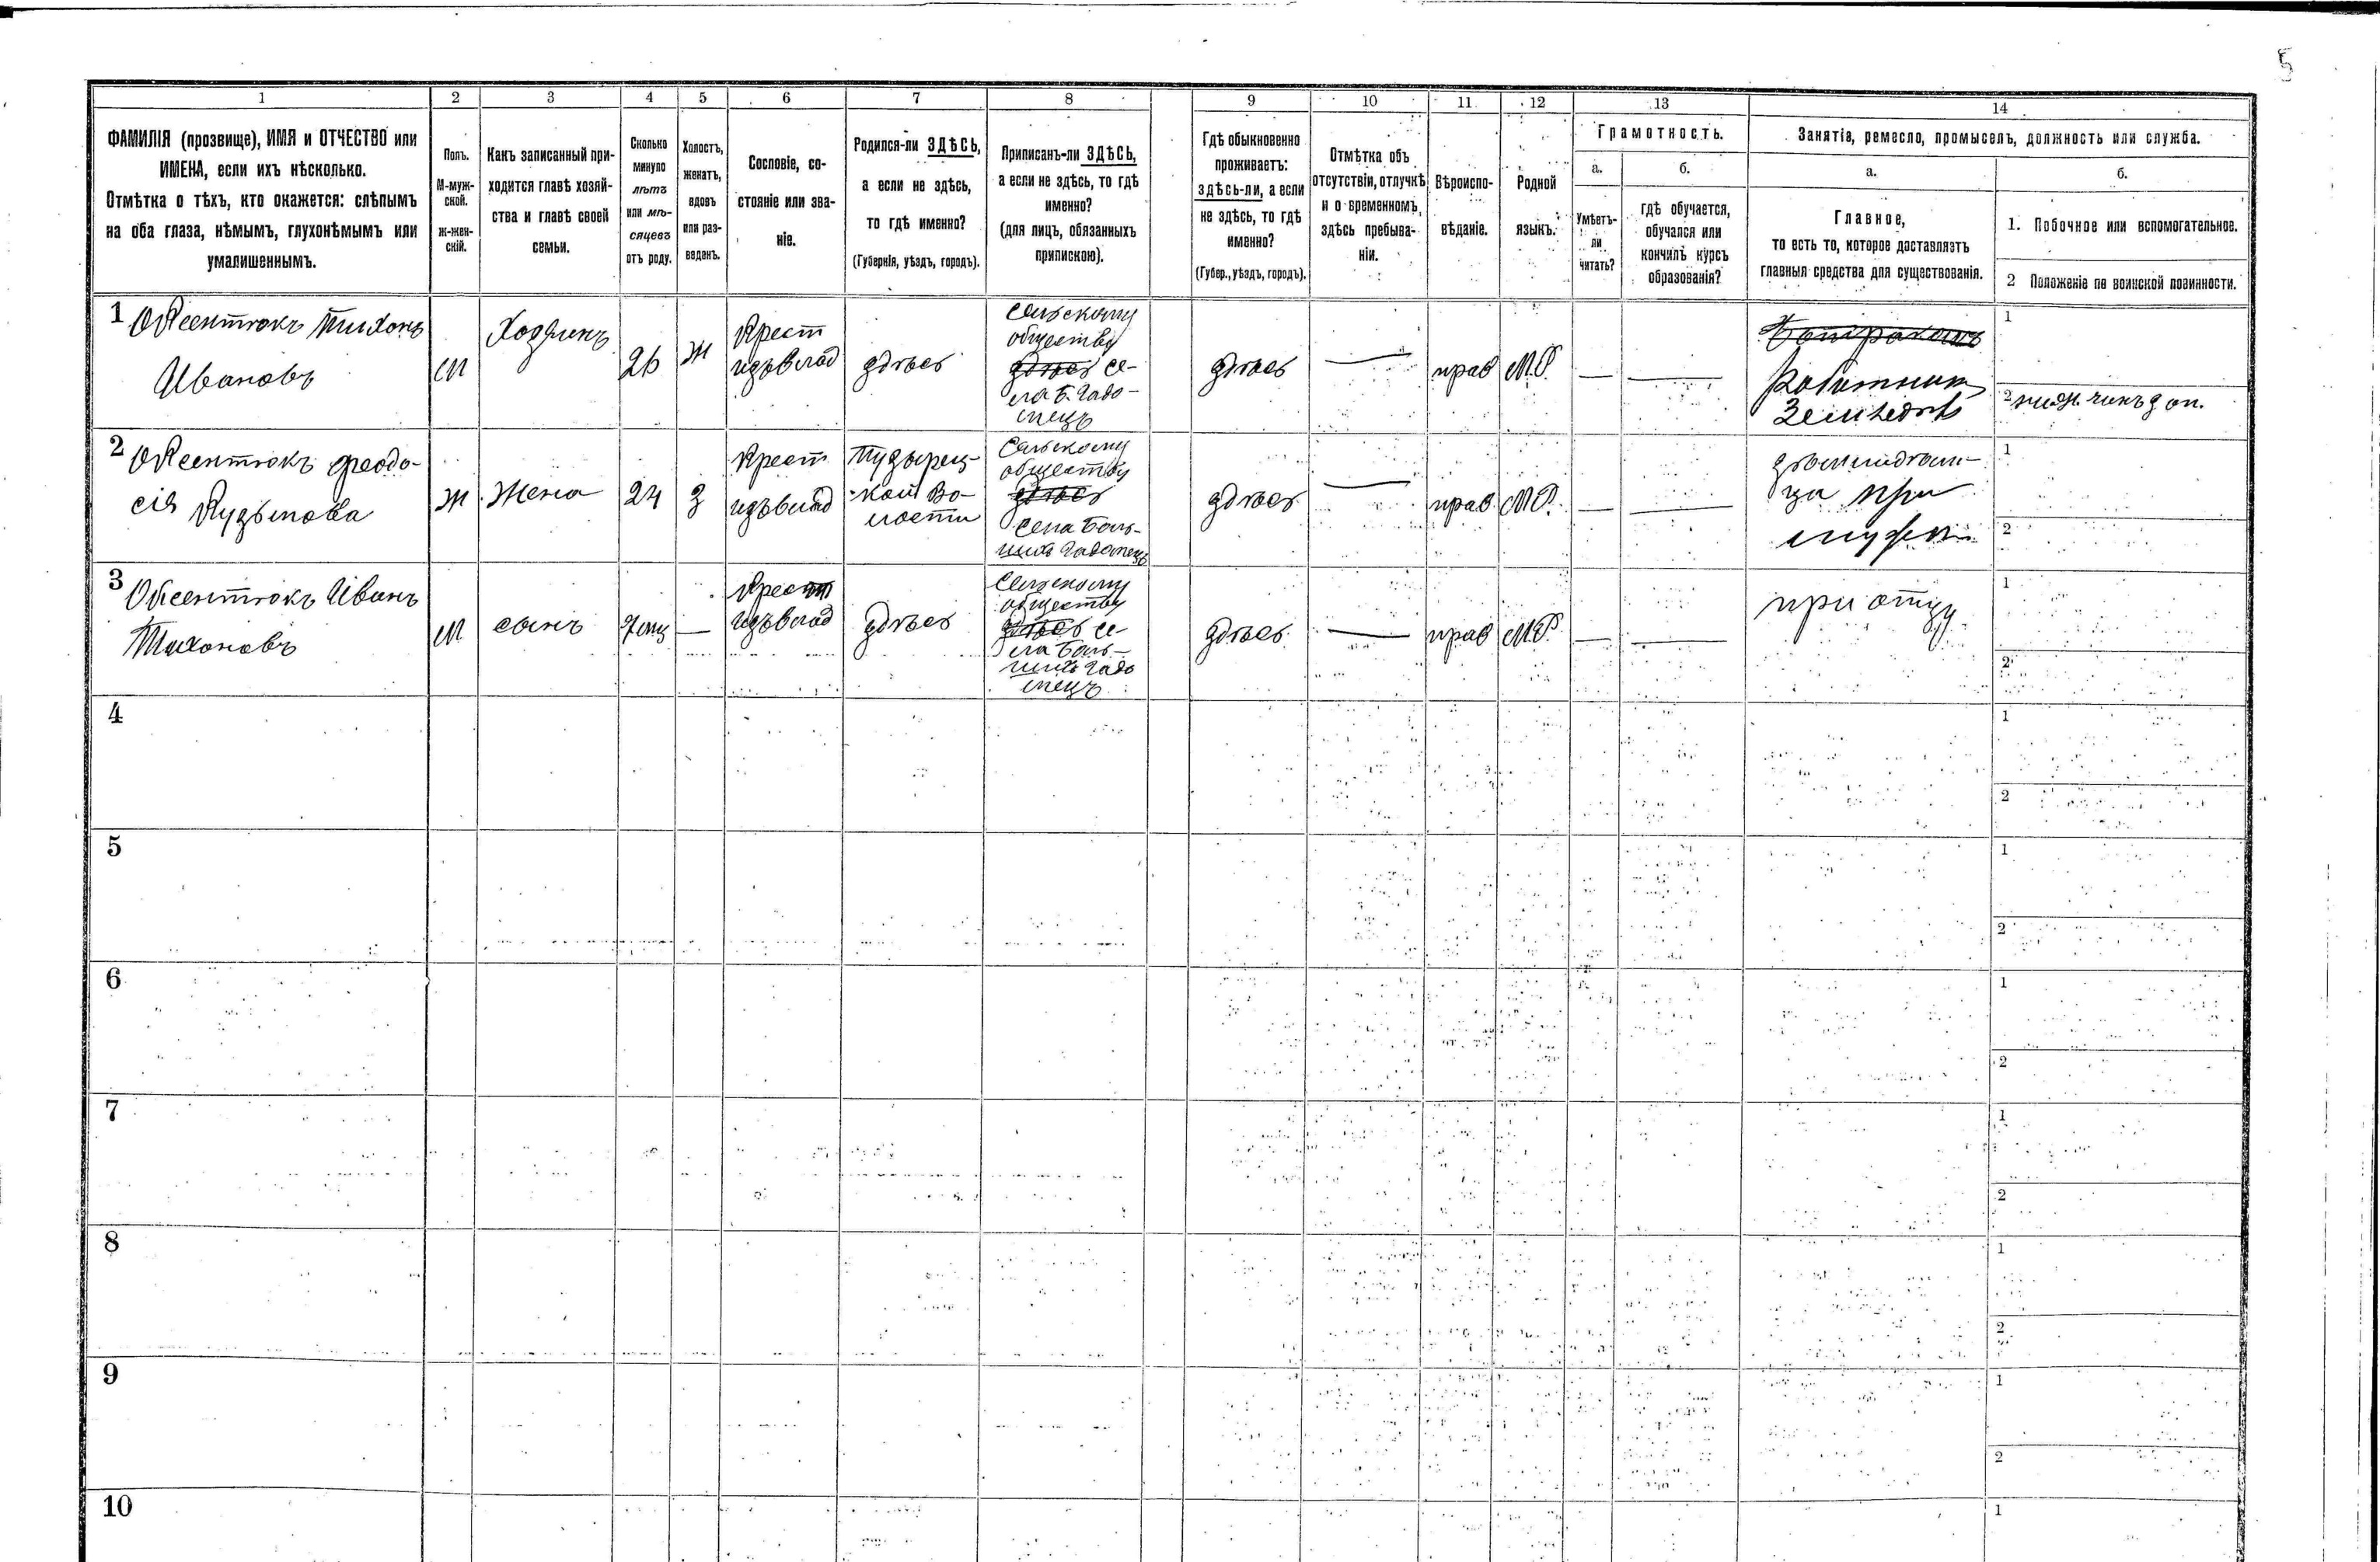 5
1 2 3 4 5 6 7 8 9 10 11 12 13 14
ФАМИЛІЯ (прозвище), ИМЯ и ОТЧЕСТВО или
ИМЕНА, если ихъ нѣсколько.
Отмѣтка о тѣхъ, кто окажется: слѣпымъ
на оба глаза, нѣмымъ, глухонѣмымъ или
умалишеннымъ.
Полъ.
М-муж-
ской.
Ж-жен-
скій.
Какъ записанный при-
ходится главѣ хозяй-
ства и главѣ своей
семьи.
Сколько
минуло
лѣтъ
или мѣ-
сяцевъ
отъ роду.
Холостъ,
женатъ,
вдовъ
или раз-
веденъ.
Сословіе, со-
стояніе или зва-
ніе.
Родился-ли ЗДѢСЬ,
а если не здѣсь,
то гдѣ именно?
(Губернія, уѣздъ, городъ).
Приписанъ-ли ЗДѢСЬ,
а если не здѣсь, то гдѣ
именно?
(для лицъ, обязанныхъ
припискою).
Гдѣ обыкновенно
проживаетъ:
здѣсь-ли, а если
не здѣсь, то гдѣ
именно?
(Губер., уѣздъ, городъ).
Отмѣтка объ
отсутствіи, отлучкѣ
и о временномъ
здѣсь пребыва-
ніи.
Вѣроиспо-
вѣданіе.
Родной
языкъ.
Грамотность.
а.
Умѣетъ-
ли
читать?
б.
гдѣ обучается,
обучался или
кончилъ курсъ
образованія?
Занятіе, ремесло, промыселъ, должность или служба.
а.
Главное,
то есть то, которое доставляетъ
главныя средства для существованія.
б.
1. Побочное или вспомогательное.
2 Положеніе по воинской повинности.
1 Оксентюкъ Тихонъ
Ивановъ
м
Хозяинъ
26
ж
Крест
изъ влад
здѣсь
Сельскому
обществу
здѣсь се-
ла Б. Гадо-
мецъ
здѣсь
—
прав
М.Р.
—
—
Работникъ
Земледѣл
1
2 нижн. чинъ зап.
2 Оксентюкъ Феодо-
сія Кузьмова
ж
Жена
24
з
Крест
изъ влад
Пузырец-
кой Во-
лости
Сельскому
обществу
здѣсь
села Боль-
шихъ Гадомецъ
здѣсь
—
прав
М.Р.
—
—
при
мужѣ
1
2
3 Оксентюкъ Иванъ
Тихоновъ
м
сынъ
7 мц
—
Крест
изъ влад
здѣсь
Сельскому
обществу
здѣсь се-
ла Боль-
шихъ Гадо
мецъ
здѣсь
—
прав
М.Р.
—
—
при отцу
1
2
4
1
2
5
1
2
6
1
2
7
1
2
8
1
2
9
1
2
10
1